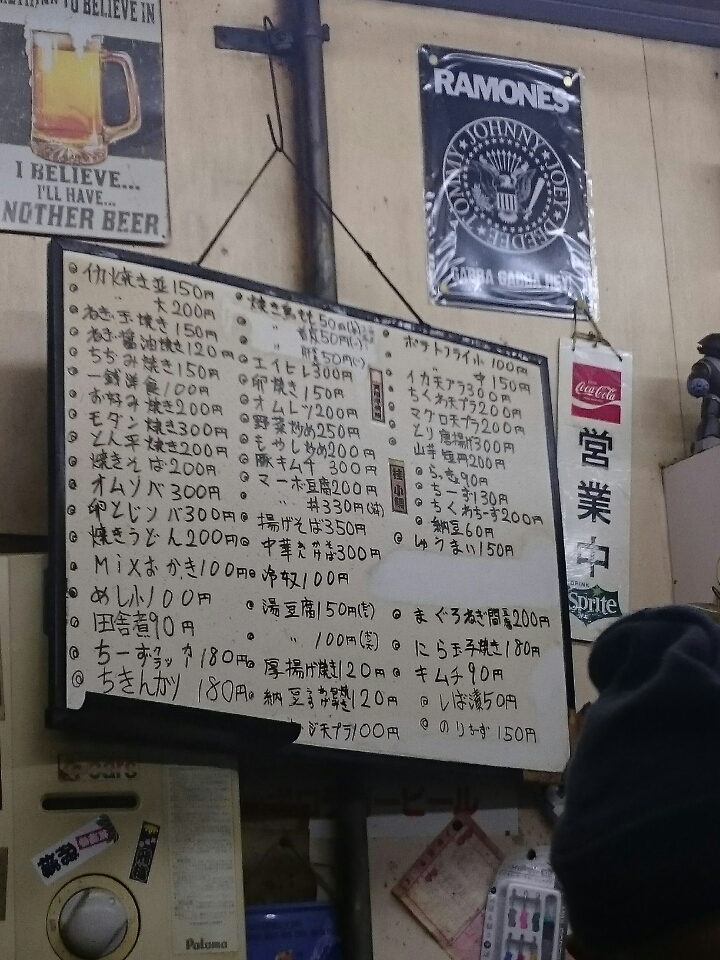 TO BELIEVE IN
I BELIEVE...
I'LL HAVE...
NOTHER BEER
RAMONES
JOHNNY JOEY DEEDEE TOMMY
GABBA GABBA HEY!
Coca-Cola
営業中
DRINK
Sprite
イカ焼き並150円
〃 大200円
ねぎ玉焼き150円
ねぎ醤油焼き120円
ちぢみ焼き150円
一銭洋食100円
お好み焼き200円
モダン焼き300円
とん平焼き200円
焼きそば200円
オムソバ300円
卵とじソバ300円
焼きうどん200円
Mixおかき100円
めし小100円
田舎煮90円
ちーずクラッカ180円
ちきんカツ180円
焼き鳥 50円
50円
50円
エイヒレ300円
卵焼き150円
オムレツ200円
野菜炒め250円
もやし炒め200円
豚キムチ 300円
マーボ豆腐200円
〃 丼330円
揚げそば350円
中華 300円
冷奴100円
湯豆腐150円
〃 100円
厚揚げ焼き120円
納豆 120円
天プラ100円
ポテトフライ小100円
〃 中150円
イカ天プラ300円
ちくわ天プラ200円
マグロ天プラ200円
とり唐揚げ300円
山芋短冊200円
らっきょ90円
ちーず130円
ちくわちーず200円
納豆60円
しゅうまい150円
まぐろねぎ間 200円
にら玉子焼き180円
キムチ90円
しば漬50円
のりちーず150円
桂小鯛
Paloma